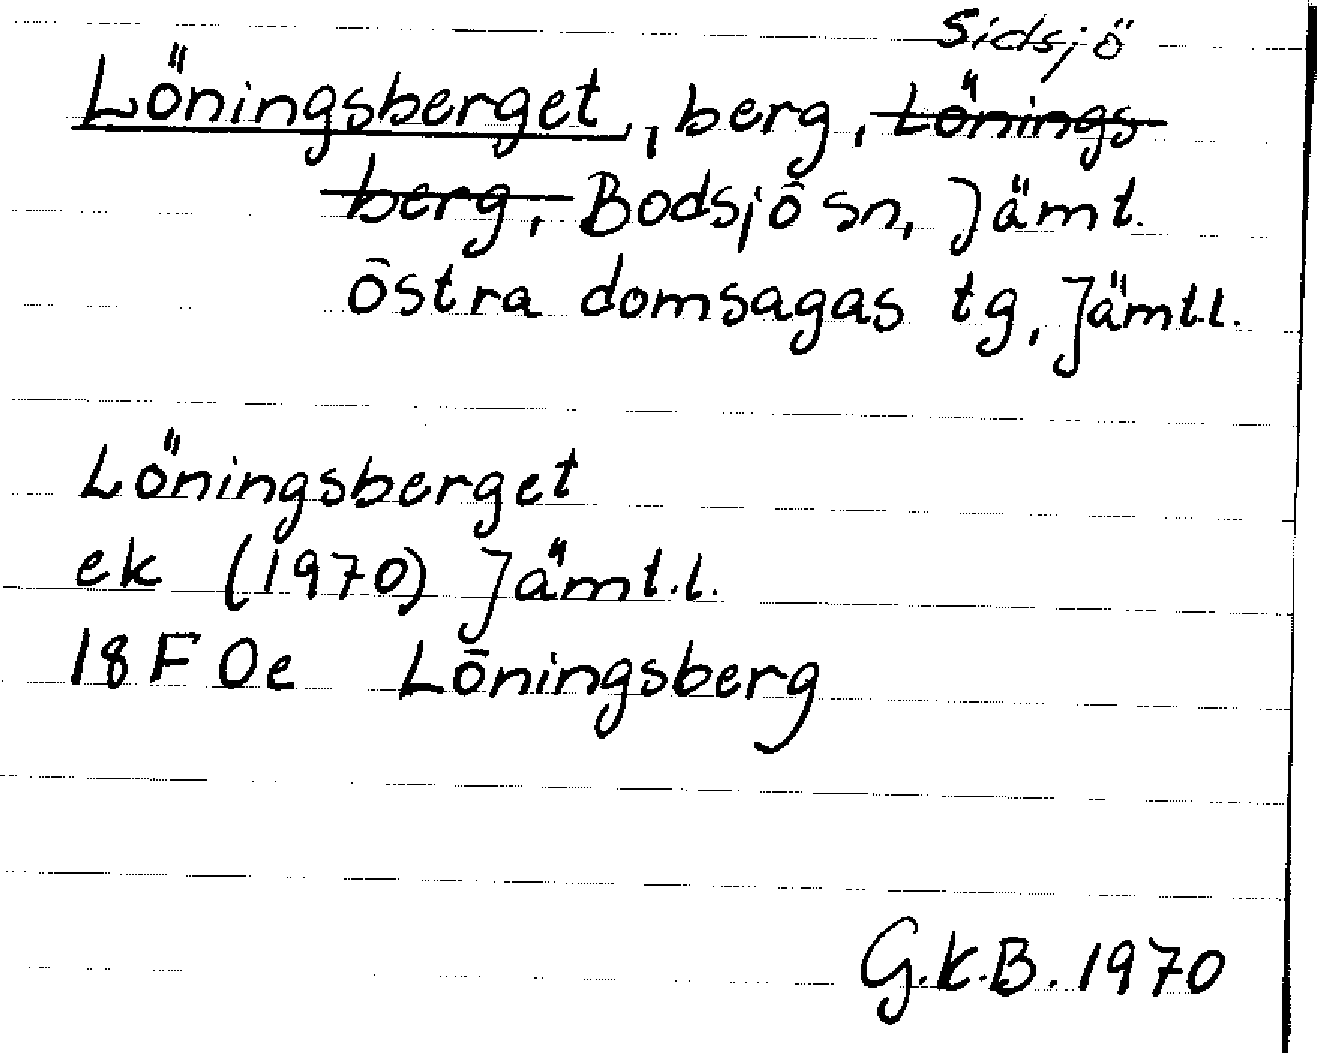 Sidsjö
Löningsberget, berg, Lönings
berg, Bodsjö sn, Jämt.
östra domsagas tg, Jämt.l.
Löningsberget
ek (1970) Jämt.l.
18F 0e Löningsberg
G.K.B. 1970